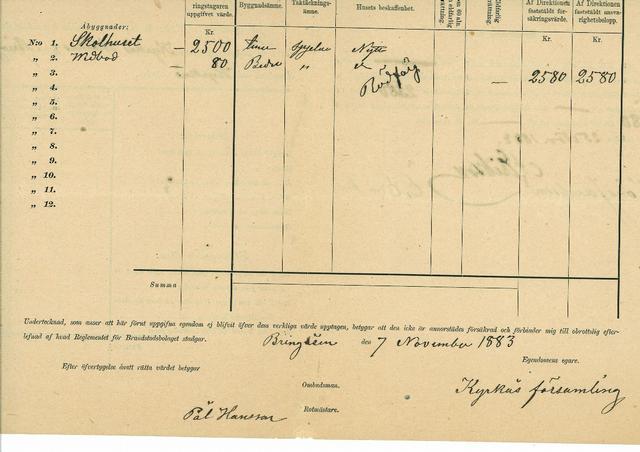 ringstagaren Byggnadsämne. Taktäcknings- Husets beskaffenhet. Af Direktionen Af Direktionen
uppgifvet värde. ämne. fastställdt för- fastställdt ansva-
säkringsvärde. righetsbelopp.
Åbyggnader: Kr. Kr. Kr.
N:o 1. Skolhuset — 2500 Timer Nytt
„ 2. Wedbod — 80 „
„ 3. Rödfärg — 2580 2580
„ 4.
„ 5.
„ 6.
„ 7.
„ 8.
„ 9.
„ 10.
„ 11.
„ 12.
Summa
Undertecknad, som anser att här förut uppgifna egendom ej blifvit öfver dess verkliga värde upptagen, betygar att den icke är annorstädes försäkrad och förbinder mig till obrottslig efter-
lefnad af hvad Reglementet för Brandstodsbolaget stadgar. Bringåsen den 7 November 1883
Egendomens egare.
Efter öfvertygelse åsatt rätta värdet betygar
Ombudsman. Kyrkås församling
Pål Hansson Rotmästare.